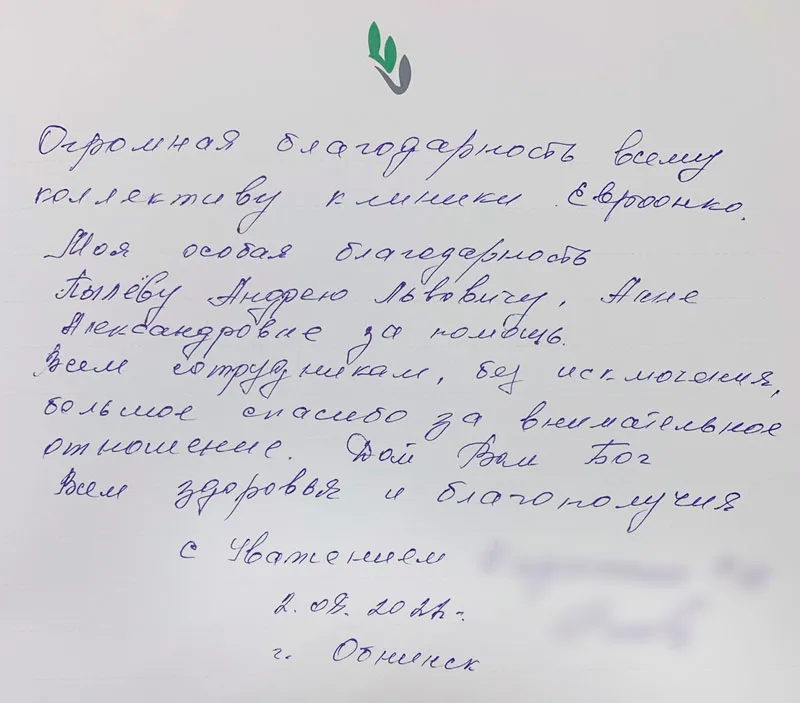 Огромная благодарность всему
коллективу клиники Евроонко.
Моя особая благодарность
Пылёву Андрею Львовичу, Анне
Александровне за помощь.
Всем сотрудникам, без исключения,
большое спасибо за внимательное
отношение. Дай Вам Бог
Всем здоровья и благополучия
с Уважением
г. Обнинск